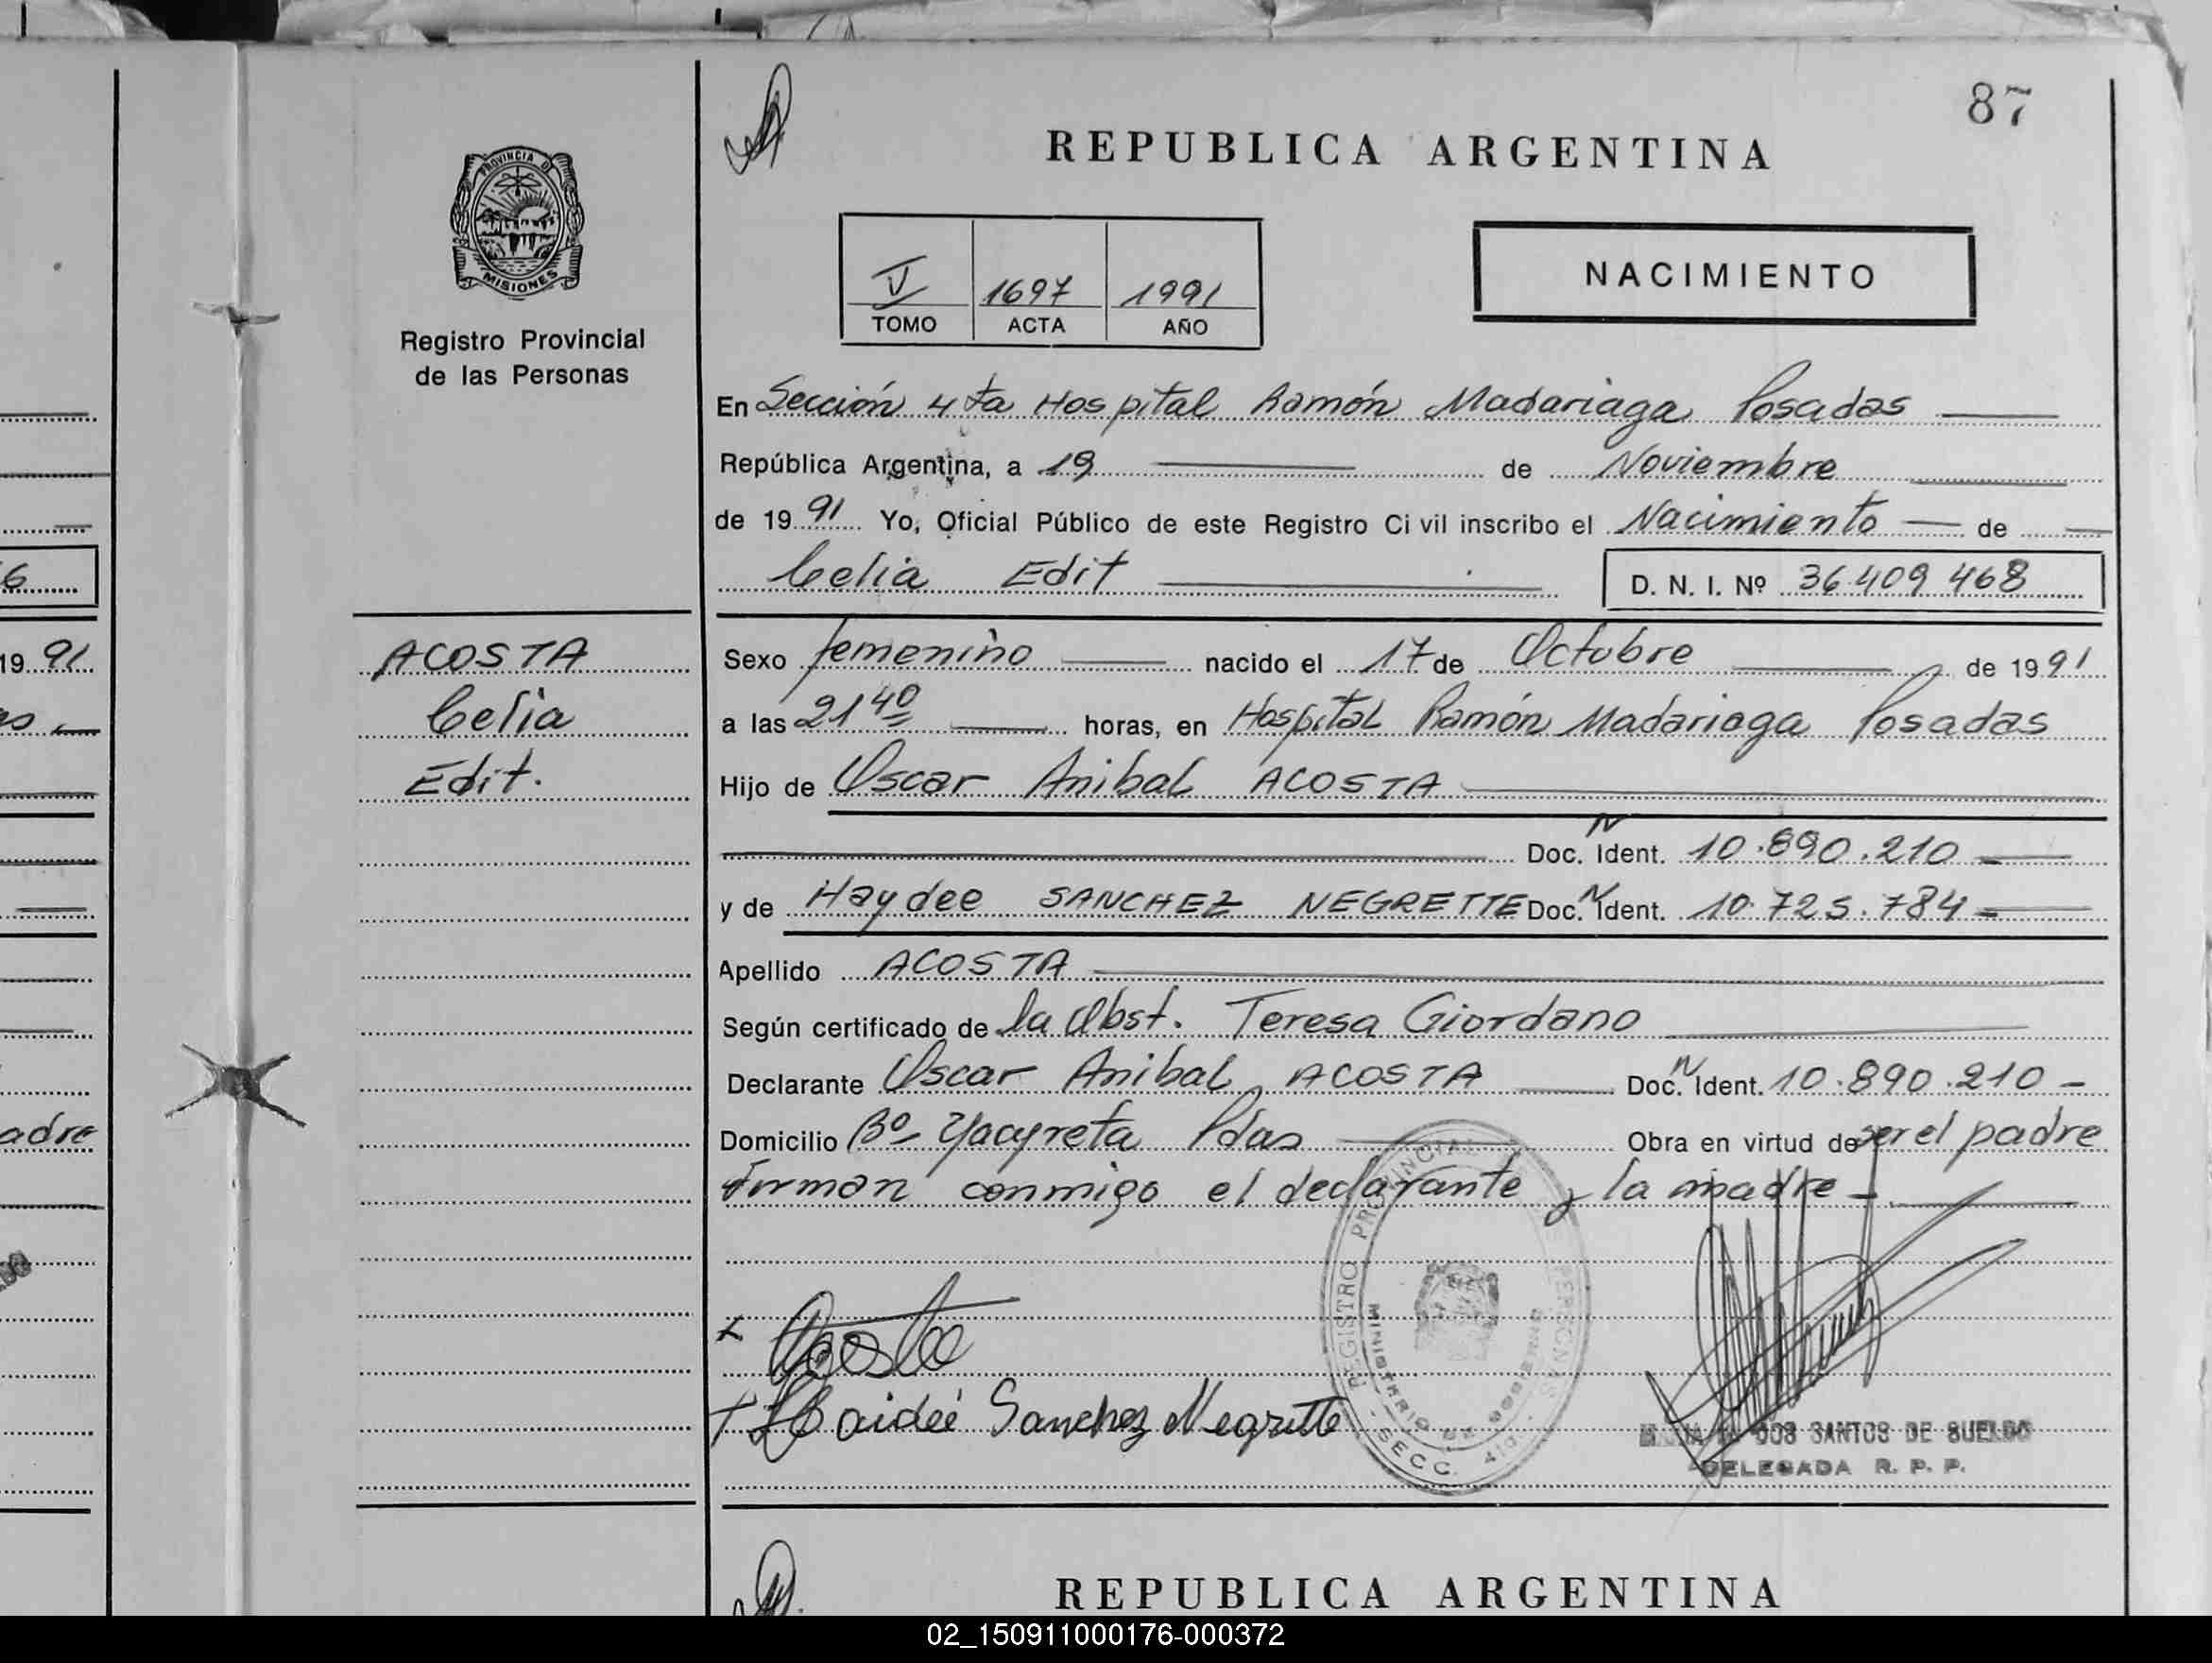 87
REPUBLICA ARGENTINA
PROVINCIA DE
MISIONES
Registro Provincial
de las Personas
V 1697 1991
TOMO ACTA AÑO
NACIMIENTO
En Sección 4ta Hospital Ramón Madariaga Posadas
República Argentina, a 19 de Noviembre
de 1991 Yo, Oficial Público de este Registro Civil inscribo el Nacimiento de
Celia Edit D. N. I. Nº 36.409 468
6
19 91
adre
ACOSTA
Celia
Edit.
Sexo femenino nacido el 17 de Octubre de 1991
a las 21 40 horas, en Hospital Ramón Madariaga Posadas
Hijo de Oscar Anibal ACOSTA
Doc. N Ident. 10.890.210
y de Haydee SANCHEZ NEGRETTE Doc. N Ident. 10.725.784
Apellido ACOSTA
Según certificado de la Obst. Teresa Giordano
Declarante Oscar Anibal ACOSTA Doc. N Ident. 10.890.210
Domicilio Bº Yacyreta Pdas Obra en virtud de ser el padre
Firman conmigo el declarante y la madre
x Acosta
+ Haideé Sanchez Negrette
REGISTRO PROVINCIAL DE PERSONAS
MINISTERIO DE GOBIERNO
SECC. 4ta
DOS SANTOS DE SUELDO
DELEGADA R. P. P.
REPUBLICA ARGENTINA
02_150911000176-000372